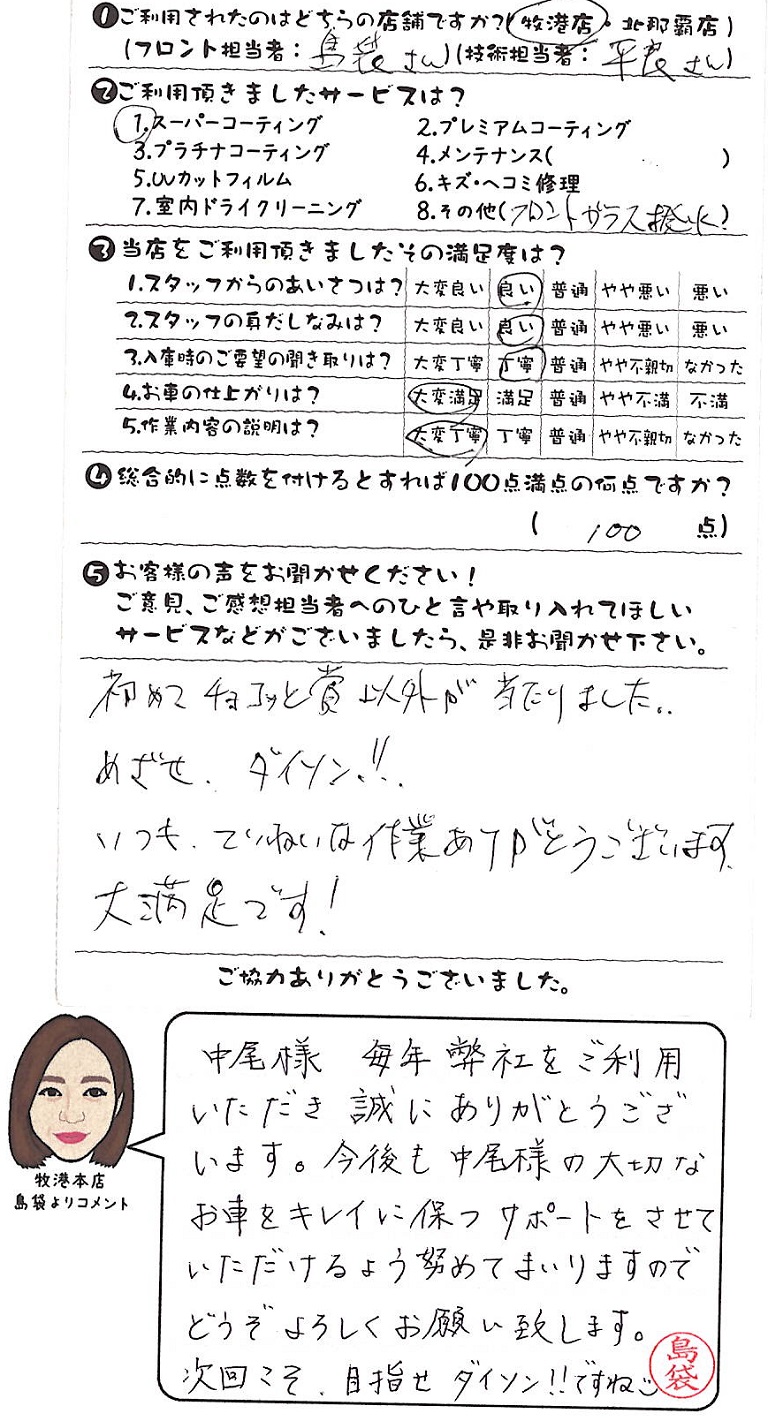 ❶ご利用されたのはどちらの店舗ですか?(牧港店・北那覇店)
(フロント担当者: 島袋さん)(技術担当者: 平良さん)
❷ご利用頂きましたサービスは?
1.スーパーコーティング 2.プレミアムコーティング
3.プラチナコーティング 4.メンテナンス( )
5.UVカットフィルム 6.キズ・ヘコミ修理
7.室内ドライクリーニング 8.その他(フロントガラス撥水)
❸当店をご利用頂きましたその満足度は?
1.スタッフからのあいさつは? 大変良い 良い 普通 やや悪い 悪い
2.スタッフの身だしなみは? 大変良い 良い 普通 やや悪い 悪い
3.入庫時のご要望の聞き取りは? 大変丁寧 丁寧 普通 やや不親切 なかった
4.お車の仕上がりは? 大変満足 満足 普通 やや不満 不満
5.作業内容の説明は? 大変丁寧 丁寧 普通 やや不親切 なかった
❹総合的に点数を付けるとすれば100点満点の何点ですか?
( 100 点)
❺お客様の声をお聞かせください!
ご意見、ご感想担当者へのひと言や取り入れてほしい
サービスなどがございましたら、是非お聞かせ下さい。
初めてチョコッと賞以外が当たりました。
めざせ、ダイソン!!
いつも、ていねいな作業ありがとうございます。
大満足です!
ご協力ありがとうございました。
中尾様 毎年弊社をご利用
いただき誠にありがとうござ
います。今後も中尾様の大切な
お車をキレイに保つサポートをさせて
いただけるよう努めてまいりますので
どうぞよろしくお願い致します。
次回こそ、目指せダイソン!!ですね
島袋
牧港本店
島袋よりコメント